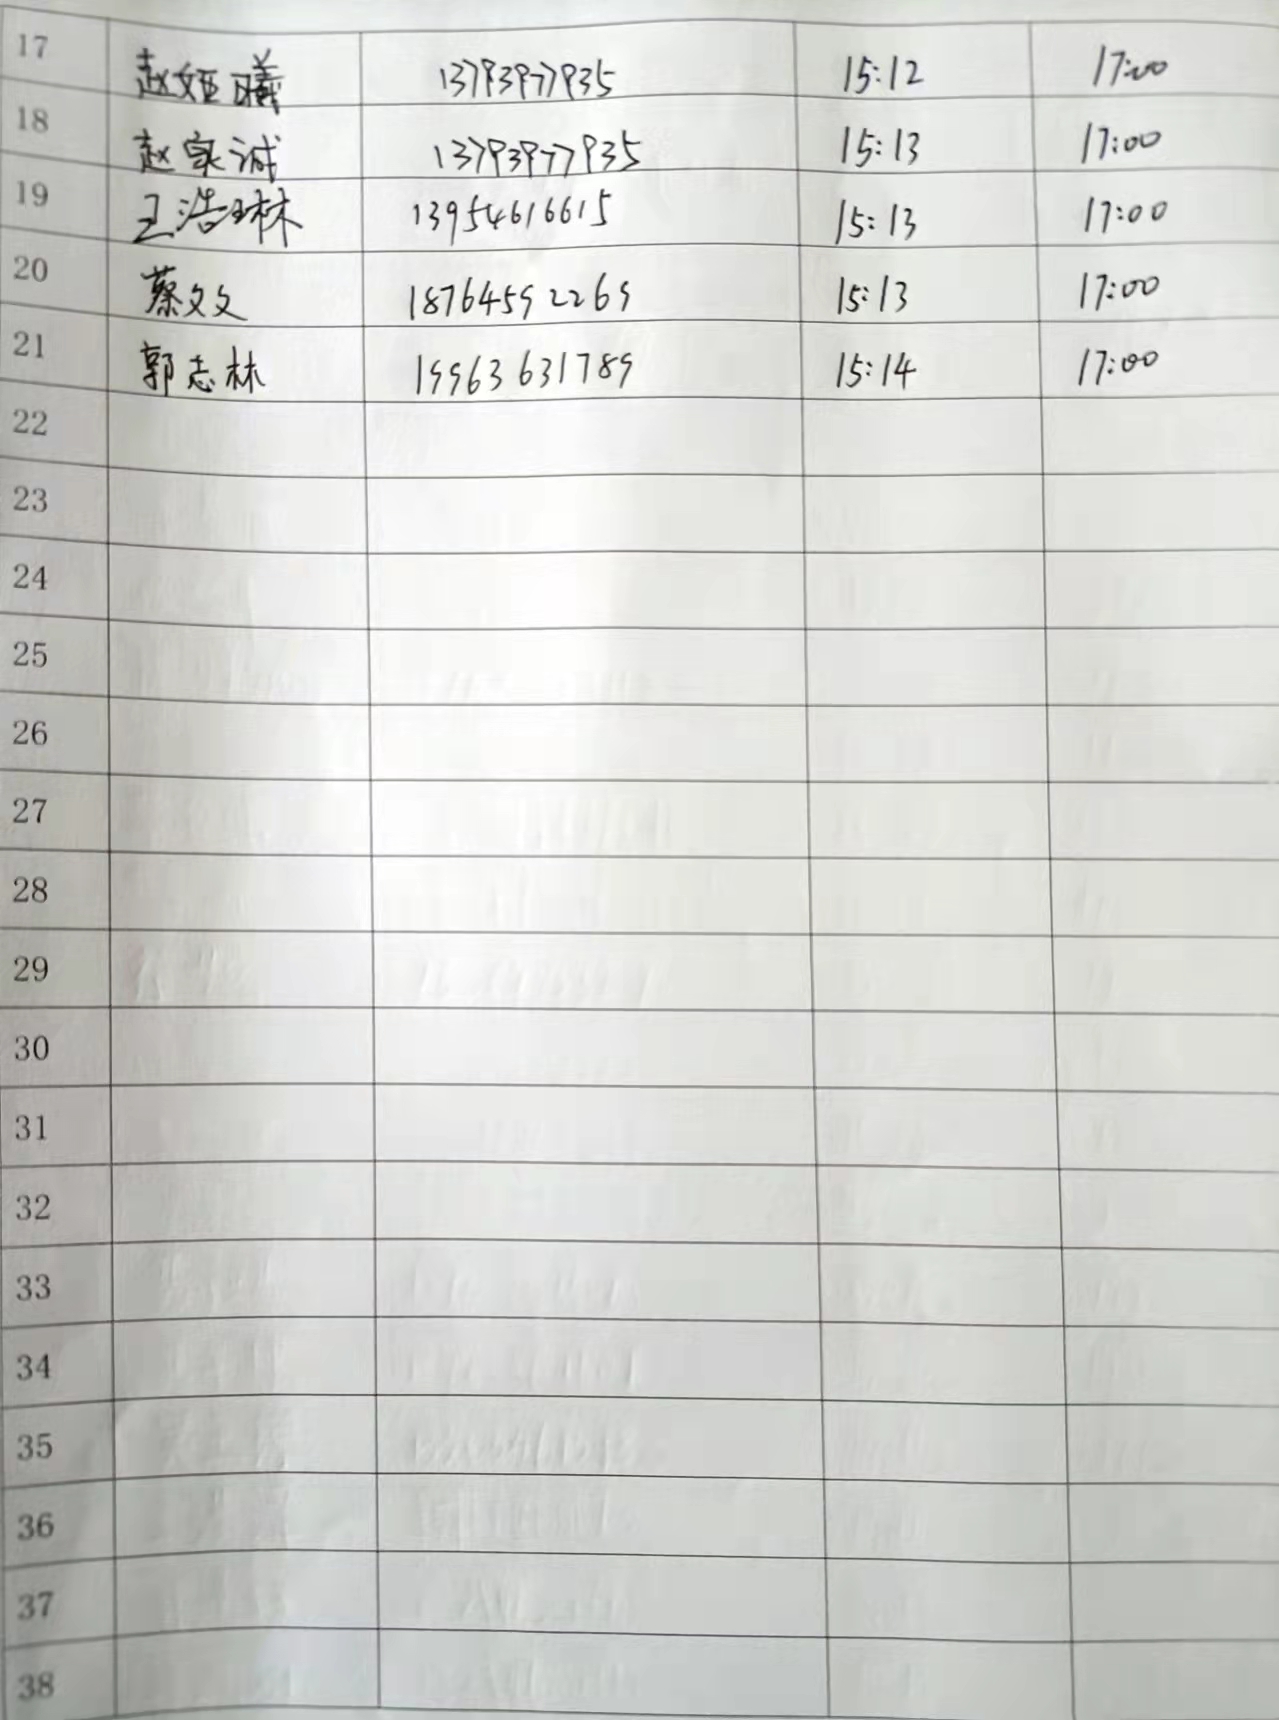 17 赵娅曦 13793977935 15:12 17:00
18 赵家诚 13793977935 15:13 17:00
19 王浩琳 13954616615 15:13 17:00
20 蔡文文 18764592269 15:13 17:00
21 郭志林 19963631789 15:14 17:00
22
23
24
25
26
27
28
29
30
31
32
33
34
35
36
37
38